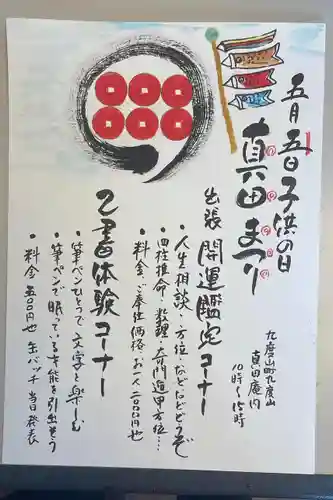 五月五日子供の日
真田まつり
九度山町九度山
真田庵内
10時〜15時
出張 開運鑑定コーナー
・人生相談・方位などなどどうぞ
・四柱推命・数理・奇門遁甲方位…
・料金・ご奉仕価格 お一人二〇〇〇円也
書体験コーナー
・筆ペンひとつで文字と楽しむ
・筆ペンで眠っている才能を引出そう
・料金 五〇〇円也 缶バッチ 当日発表